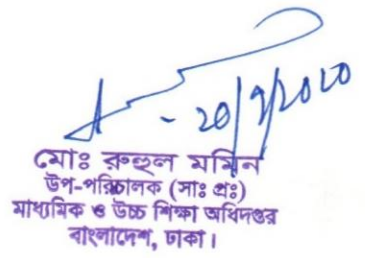 20/9/2020
মোঃ রুহুল মমিন
উপ-পরিচালক (সাঃ প্রঃ)
মাধ্যমিক ও উচ্চ শিক্ষা অধিদপ্তর
বাংলাদেশ, ঢাকা।